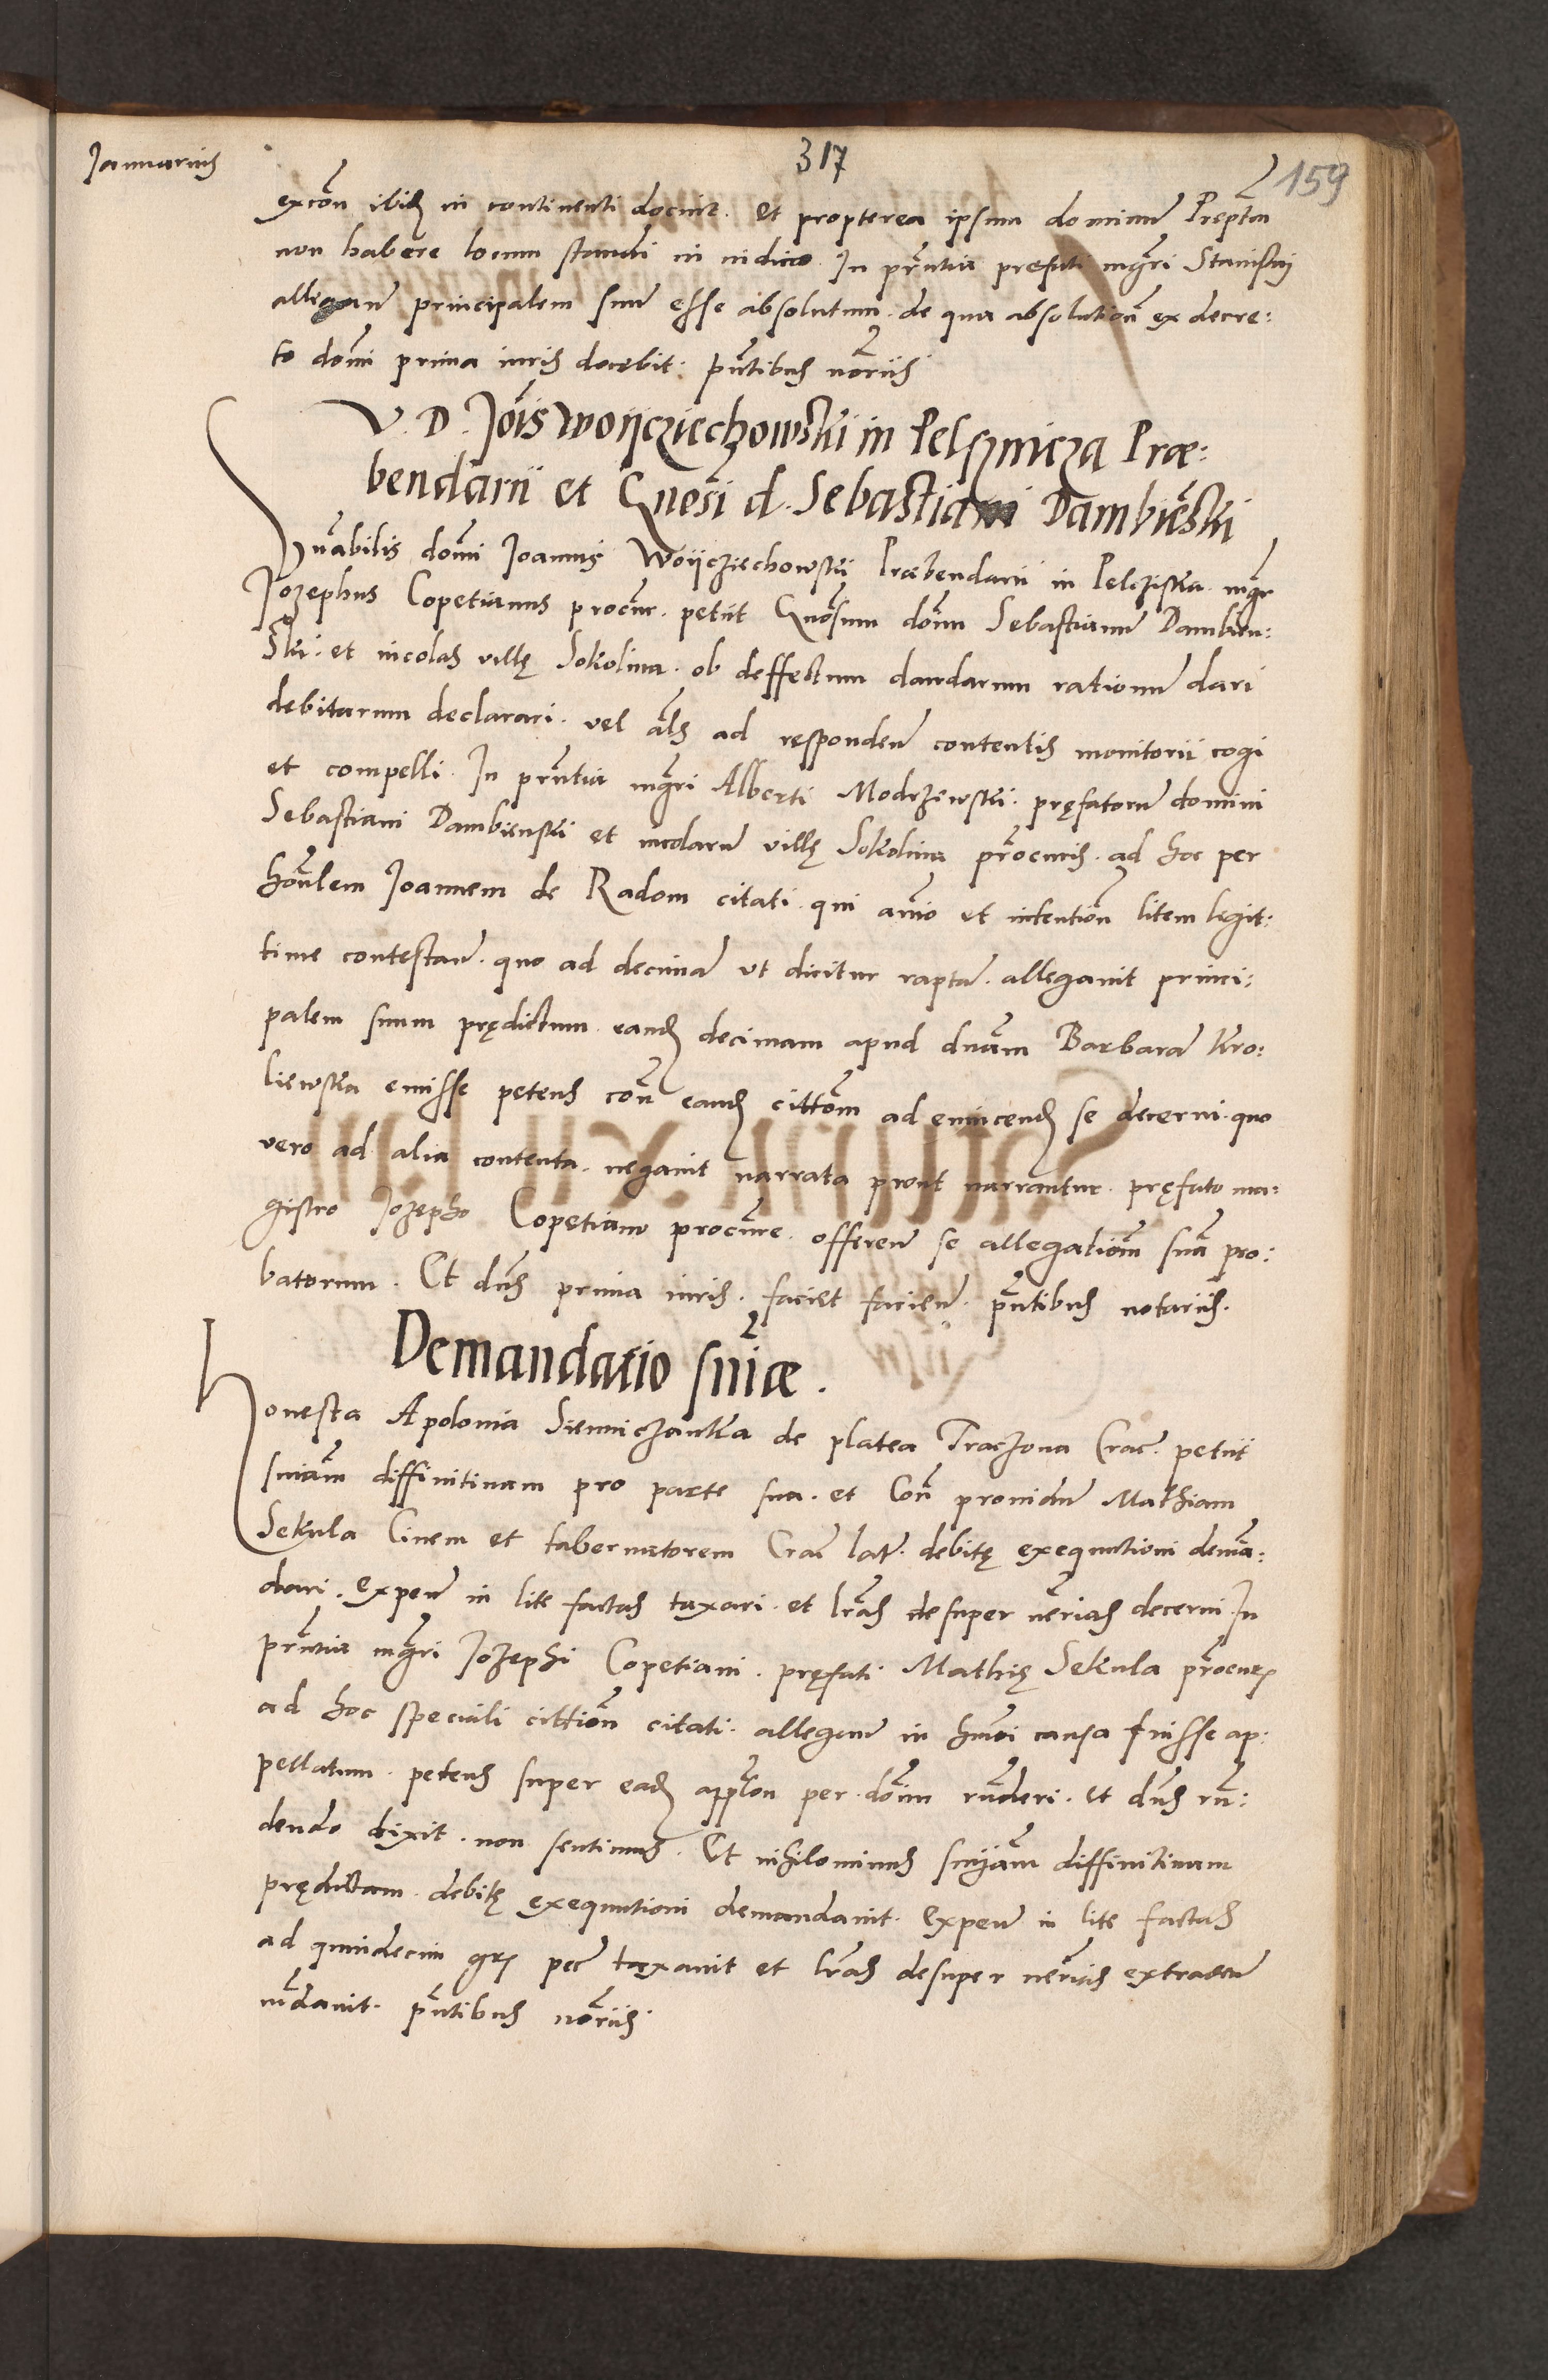 Januarius
317
159
excōn ibidē in continenti docuit. Et propterea ipsum dominum
non habere locum standi in iudicio. In pr̄ntia prefati mgr̄i
allegan̄ principalem suū esse absolutum. de qua absolutiōn ex decre:
to domī prima iuris docebit. pn̄tibus nōriis
V. D. Joīs Woijcziechowski in Pelsznicza Præ:
bendarii et Gnēsi d. Sebastiani Dambieński
Vn̄abilis domī Joannis Woijcziechowski Præbendarii in Pelcziska. mgr̄
Jozephus Copetianus procur̄. petiit Gnōsum domn̄ Sebastianū Dambien:
ski: et incolas villę Sokolina. ob deffectum dandarum rationū dari
debitarum declarari. vel al̄s ad respondenū contentis monitorii cogi
et compelli. In pr̄ntia mgr̄i Alberti Modrzewski. pręfatorū domini
Sebastiani Dambienski et incolarū villę Sokolina pr̄ocuris. ad hoc per
hon̄lem Joannem de Radom citati. qui anīo et intentiōn litem legit:
time contestanū. quo ad decimā ut dicitur raptā. allegauit princi:
palem suum prędictum eandē decimam apud dnām Barbarā Kro:
liewska emisse petens con̄ eandē cittōm ad euincendē se decerni. quo
vero ad alia contenta. negauit narrata prout narrantur. pręfato ma:
gistro Jozepho Copetiano procur̄e. offerenū se allegatiōm suā pro:
baturum. Et dn̄s prima iuris. faciet facienū. pn̄tibus notariis.
Demandatio sn̄iæ.
Honesta Apolonia Siemiczantka de platea Traczona Crac̄. petiit
sniām diffinitiuam pro parte sua. et Con̄ prouidū Mathiam
Sekula Ciuem et tabernatorem Crac̄ latā. debitę exequutioni demā:
dari. expenū in lite factas taxari. et lrās desuper nēcrias decerni. In
pr̄ntia mgr̄i Jozephi Copetiani. pręfati Mathię Sekula pr̄ocuris
ad hoc speciali cittiōn citati. allegenū in hm̄oi causa fuisse ap:
pellatum. petens super eadē applōn per dom̄n rn̄deri. et dn̄s rn̄:
dendo dixit. non sentimus. Et nihilominus sniāam diffinitiuam
prędictam. debitę exequutioni demandauit. Expenū in lite factas
ad quindecim gr̄s pec̄ taxauit et lrās desuper nēcrias extraden̄
mdāuit. pn̄tibus nōriis.